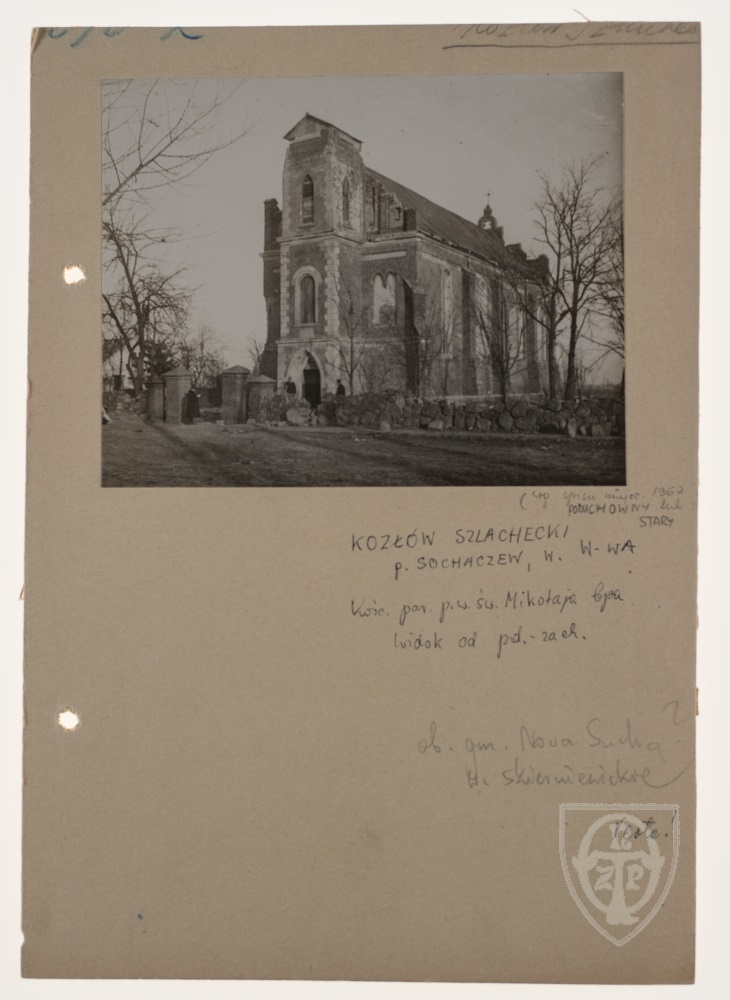 (wg spisu miejsc. 1967
PODUCHOWNY lub
STARY
KOZŁÓW SZLACHECKI
p. SOCHACZEW, w. W-WA
Kośc. par. p.w. św. Mikołaja bpa
Widok od pd.-zach.
ob. gm. Nowa Sucha ?
w. skierniewickie
TZP